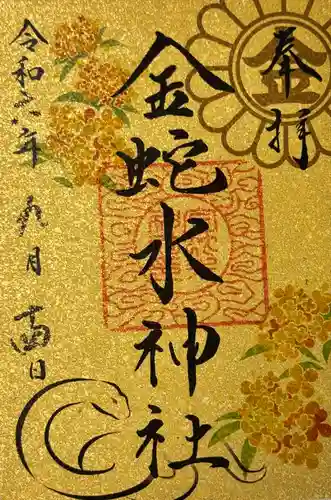 奉拝
金
金蛇水神社
令和六年
九月